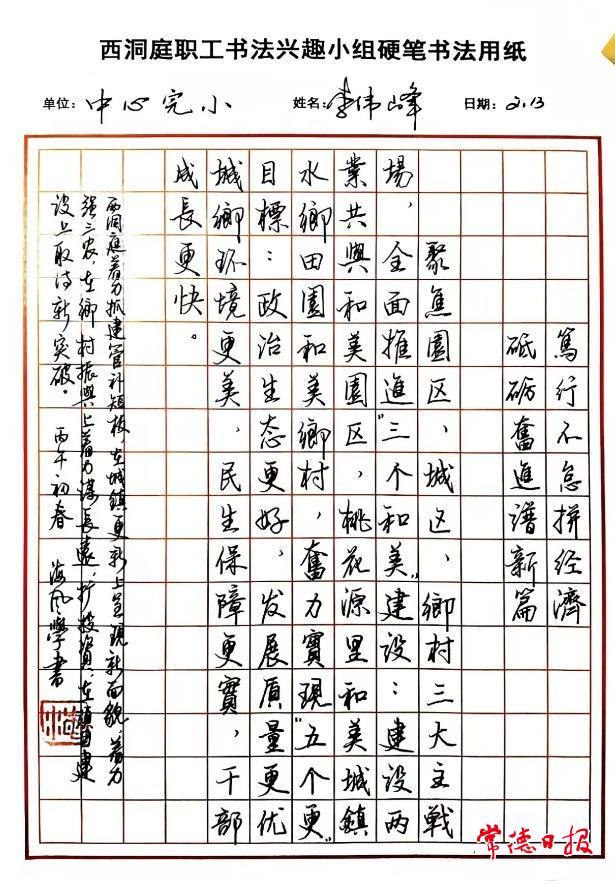 西洞庭职工书法兴趣小组硬笔书法用纸
单位：中心完小 姓名：李伟峰 日期：2.13
篤行不怠拼经濟
砥砺奮進譜新篇
聚焦園区、城区、鄉村三大主戰
場，全面推進“三个和美”建设：建设两
業共興和美園区，桃花源里和美城鎮
水鄉田園和美鄉村，奮力實現“五个更”
目標：政治生态更好，发展质量更优
城鄉环境更美，民生保障更實，干部
成長更快。
西洞庭着力抓建管补短板，在城鎮更新上呈現新面貌，着力
强三农在鄉村振興上着力谋長遠，扩投資，在項目建
设上取得新突破。 丙午初春 海风學書
常德日报